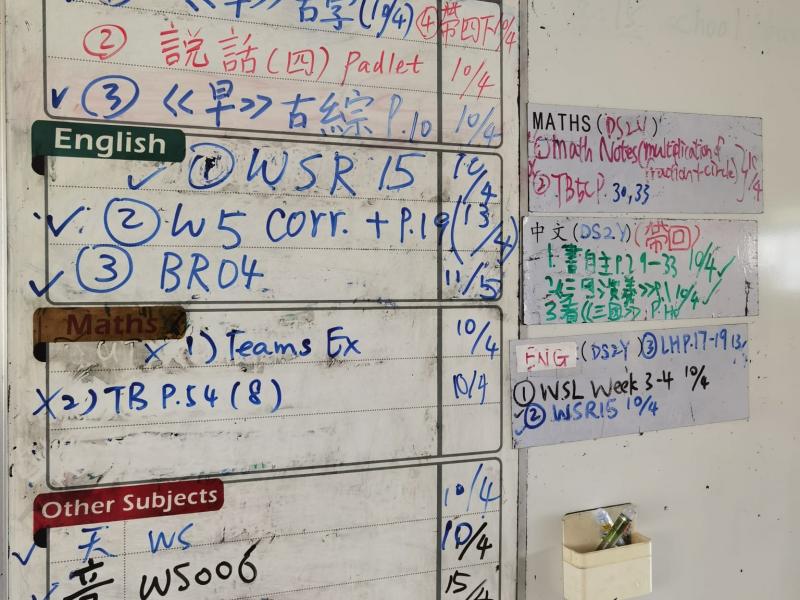 《早》古字(10/4) ④ 帶四下 10/4
② 説話(四) Padlet 10/4
✓ ③ 《早》古綜 P.10 10/4
English
✓ ① WSR 15 10/4
✓ ② W5 Corr. + P.19 (13/4)
✓ ③ BR04 11/5
Maths
x 1) Teams Ex 10/4
x 2) TB P.54 (8) 10/4
Other Subjects
10/4
✓ 天 WS 10/4
音 WS006
15/4
MATHS (DS2Y)
① Math Notes (multiplication of
fraction + circle) 15/4
② TB 5C P. 30,33
中文 (DS2Y) (帶回)
1. 書自主 P.29-33 10/4 ✓
2. 《三国演義》 10/4 ✓
3. 看《三國》
ENG (DS2Y) ③ LH P.17-19 13/
① WSL Week 3-4 10/4
✓ ② WSR15 10/4